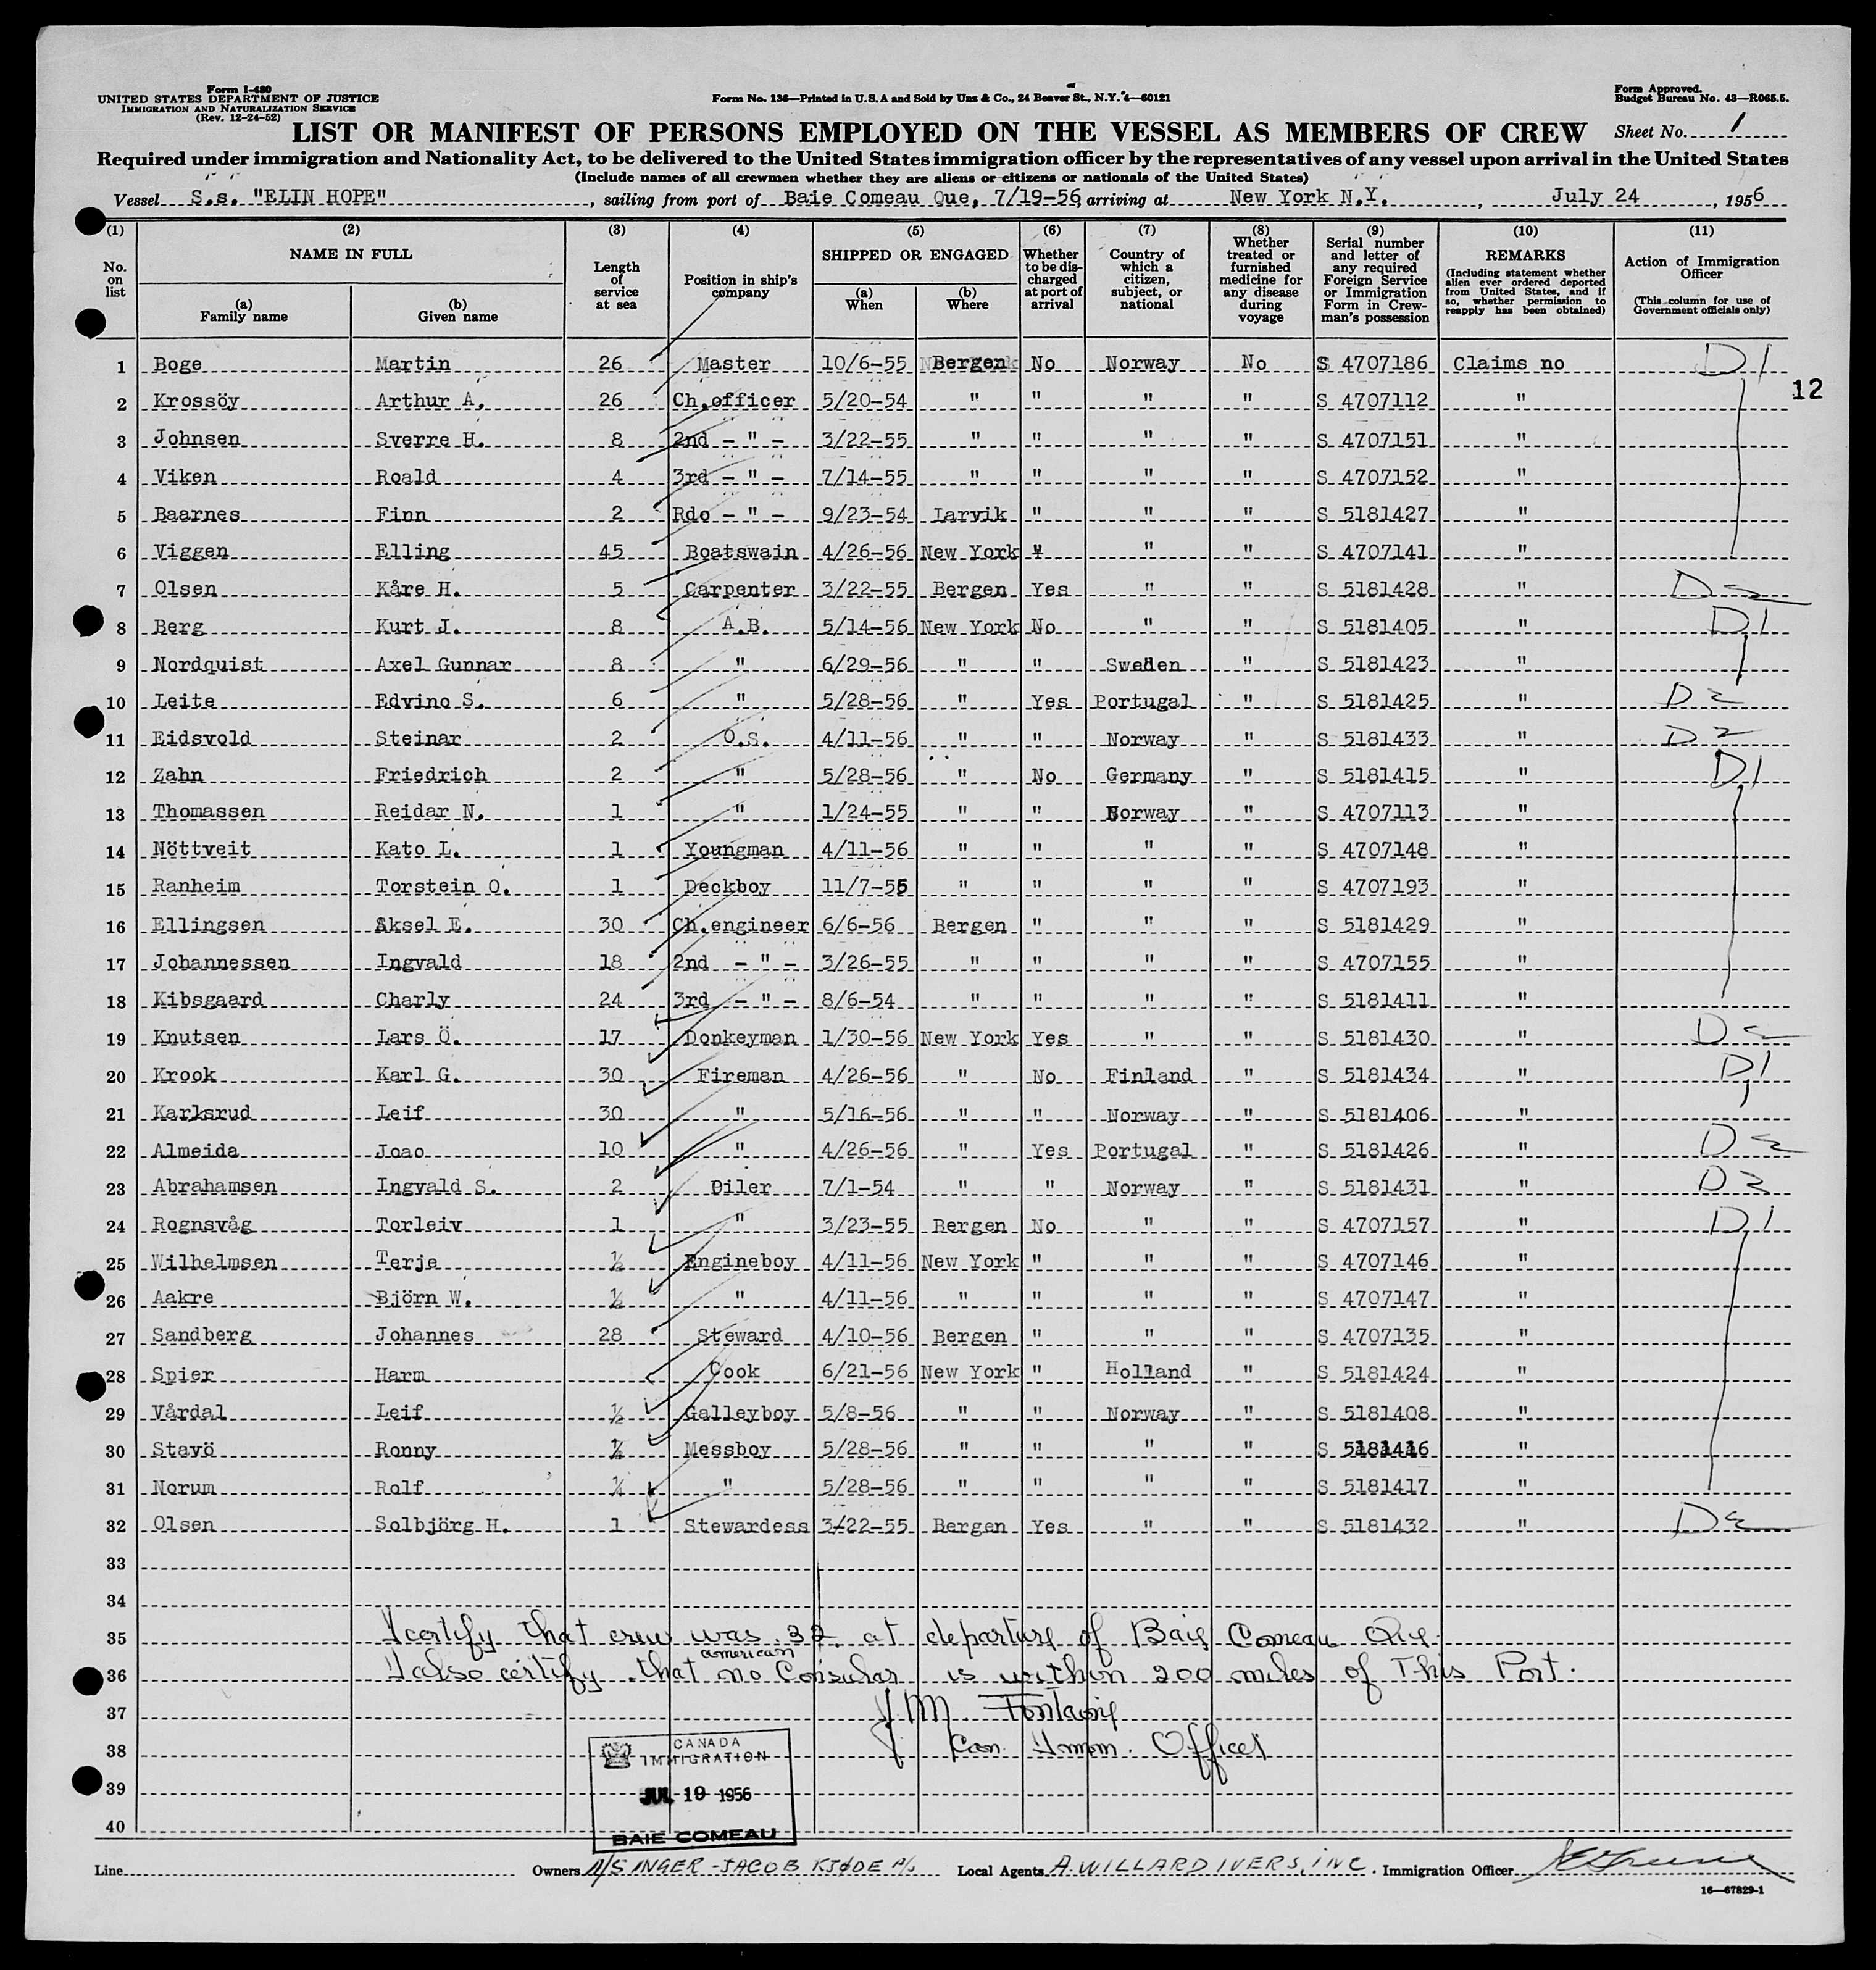 Form I-480
UNITED STATES DEPARTMENT OF JUSTICE
IMMIGRATION AND NATURALIZATION SERVICE
(Rev. 12-24-52)
Form No. 136—Printed in U.S.A and Sold by Unz & Co., 24 Beaver St., N.Y. 4—60121
Form Approved.
Budget Bureau No. 43—R065.5.
LIST OR MANIFEST OF PERSONS EMPLOYED ON THE VESSEL AS MEMBERS OF CREW
Sheet No. 1
Required under immigration and Nationality Act, to be delivered to the United States immigration officer by the representatives of any vessel upon arrival in the United States
(Include names of all crewmen whether they are aliens or citizens or nationals of the United States)
Vessel S.s. "ELIN HOPE", sailing from port of Baie Comeau Que, 7/19-56, arriving at New York N.Y., July 24, 1956
(1) No. on list
(2) NAME IN FULL
(a) Family name
(b) Given name
(3) Length of service at sea
(4) Position in ship's company
(5) SHIPPED OR ENGAGED
(a) When
(b) Where
(6) Whether to be discharged at port of arrival
(7) Country of which a citizen, subject, or national
(8) Whether treated or furnished medicine for any disease during voyage
(9) Serial number and letter of any required Foreign Service or Immigration Form in Crewman's possession
(10) REMARKS
(Including statement whether alien ever ordered deported from United States, and if so, whether permission to reapply has been obtained)
(11) Action of Immigration Officer
(This column for use of Government officials only)
1 Boge Martin 26 Master 10/6-55 Bergen No Norway No S 4707186 Claims no D1
12
2 Krossöy Arthur A. 26 Ch.officer 5/20-54 " " " " S 4707112 "
3 Johnsen Sverre H. 8 2nd - " - 3/22-55 " " " " S 4707151 "
4 Viken Roald 4 3rd - " - 7/14-55 " " " " S 4707152 "
5 Baarnes Finn 2 Rdo - " - 9/23-54 Larvik " " " S 5181427 "
6 Viggen Elling 45 Boatswain 4/26-56 New York " " " S 4707141 "
7 Olsen Kåre H. 5 Carpenter 3/22-55 Bergen Yes " " S 5181428 " D2
8 Berg Kurt J. 8 A.B. 5/14-56 New York No " " S 5181405 " D1
9 Nordquist Axel Gunnar 8 " 6/29-56 " " Sweden " S 5181423 "
10 Leite Edvino S. 6 " 5/28-56 " Yes Portugal " S 5181425 " D2
11 Eidsvold Steinar 2 O.S. 4/11-56 " " Norway " S 5181433 " D2
12 Zahn Friedrich 2 " 5/28-56 " No Germany " S 5181415 " D1
13 Thomassen Reidar N. 1 " 1/24-55 " " Norway " S 4707113 "
14 Nöttveit Kato L. 1 Youngman 4/11-56 " " " " S 4707148 "
15 Ranheim Torstein O. 1 Deckboy 11/7-55 " " " " S 4707193 "
16 Ellingsen Aksel E. 30 Ch.engineer 6/6-56 Bergen " " " S 5181429 "
17 Johannessen Ingvald 18 2nd - " - 3/26-55 " " " " S 4707155 "
18 Kibsgaard Charly 24 3rd - " - 8/6-54 " " " " S 5181411 "
19 Knutsen Lars Ö. 17 Donkeyman 1/30-56 New York Yes " " S 5181430 " D2
20 Krook Karl G. 30 Fireman 4/26-56 " No Finland " S 5181434 " D1
21 Karlsrud Leif 30 " 5/16-56 " " Norway " S 5181406 "
22 Almeida Joao 10 " 4/26-56 " Yes Portugal " S 5181426 " D2
23 Abrahamsen Ingvald S. 2 Oiler 7/1-54 " " Norway " S 5181431 " D2
24 Rognsvåg Torleiv 1 " 3/23-55 Bergen No " " S 4707157 " D1
25 Wilhelmsen Terje ½ Engineboy 4/11-56 New York " " " S 4707146 "
26 Aakre Björn W. ½ " 4/11-56 " " " " S 4707147 "
27 Sandberg Johannes 28 Steward 4/10-56 Bergen " " " S 4707135 "
28 Spier Harm Cook 6/21-56 New York " Holland " S 5181424 "
29 Vårdal Leif ½ Galleyboy 5/8-56 " " Norway " S 5181408 "
30 Stavö Ronny ¼ Messboy 5/28-56 " " " " S 5181416 "
31 Norum Rolf ¼ " 5/28-56 " " " " S 5181417 "
32 Olsen Solbjörg H. 1 Stewardess 3/22-55 Bergen Yes " " S 5181432 " D2
33
34
35 I certify that crew was 32 at departure of Baie Comeau Que.
36 I also certify that no american Consular is within 200 miles of This Port.
37 J.M. Fontaine
38 Can. Imm. Officer
39
40
CANADA
IMMIGRATION
JUL 19 1956
BAIE COMEAU
Line
Owners A/S INGER - JACOB KJØDE A/S
Local Agents A. WILLARD IVERS, INC.
Immigration Officer
16—67829-1